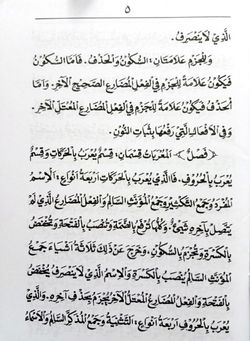 ٥
الَّذِي لَا يَنْصَرِفُ.
وَلِلْجَزْمِ عَلَامَتَانِ: السُّكُونُ وَالْحَذْفُ. فَأَمَّا السُّكُونُ
فَيَكُونُ عَلَامَةً لِلْجَزْمِ فِي الْفِعْلِ الْمُضَارِعِ الصَّحِيحِ الْآخِرِ. وَأَمَّا
الْحَذْفُ فَيَكُونُ عَلَامَةً لِلْجَزْمِ فِي الْفِعْلِ الْمُضَارِعِ الْمُعْتَلِّ الْآخِرِ.
وَفِي الْأَفْعَالِ الَّتِي رَفْعُهَا بِثَبَاتِ النُّونِ.
﴿فَصْلٌ﴾ - الْمُعْرَبَاتُ قِسْمَانِ: قِسْمٌ يُعْرَبُ بِالْحَرَكَاتِ وَقِسْمٌ
يُعْرَبُ بِالْحُرُوفِ. فَالَّذِي يُعْرَبُ بِالْحَرَكَاتِ أَرْبَعَةُ أَنْوَاعٍ: الْاِسْمُ
الْمُفْرَدُ وَجَمْعُ التَّكْسِيرِ وَجَمْعُ الْمُؤَنَّثِ السَّالِمُ وَالْفِعْلُ الْمُضَارِعُ الَّذِي لَمْ
يَتَّصِلْ بِآخِرِهِ شَيْءٌ. وَكُلُّهَا تُرْفَعُ بِالضَّمَّةِ وَتُنْصَبُ بِالْفَتْحَةِ وَتُخْفَضُ
بِالْكَسْرَةِ وَتُجْزَمُ بِالسُّكُونِ. وَخَرَجَ عَنْ ذَلِكَ ثَلَاثَةُ أَشْيَاءَ جَمْعُ
الْمُؤَنَّثِ السَّالِمُ يُنْصَبُ بِالْكَسْرَةِ وَالْاِسْمُ الَّذِي لَا يَنْصَرِفُ يُخْفَضُ
بِالْفَتْحَةِ وَالْفِعْلُ الْمُضَارِعُ الْمُعْتَلُّ الْآخِرِ يُجْزَمُ بِحَذْفِ آخِرِهِ. وَالَّذِي
يُعْرَبُ بِالْحُرُوفِ أَرْبَعَةُ أَنْوَاعٍ: التَّثْنِيَةُ وَجَمْعُ الْمُذَكَّرِ السَّالِمُ وَالْأَسْمَاءُ